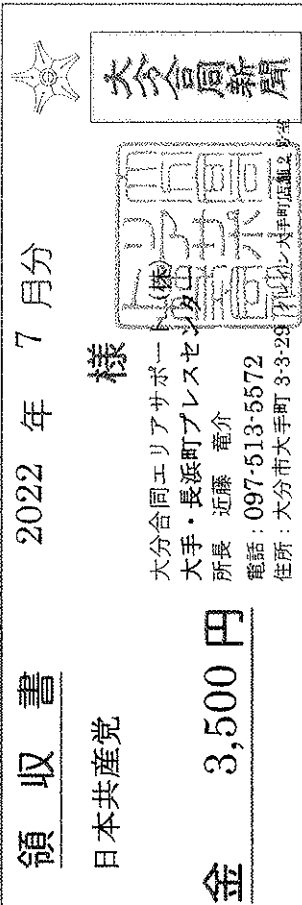 領収書
2022 年 7 月分
大分合同新聞
日本共産党 様
金 3,500 円
大分合同エリアサポート(株)
大手・長浜町プレスセンター
所長 近藤 竜介
電話：097-513-5572
住所：大分市大手町 3-3-29